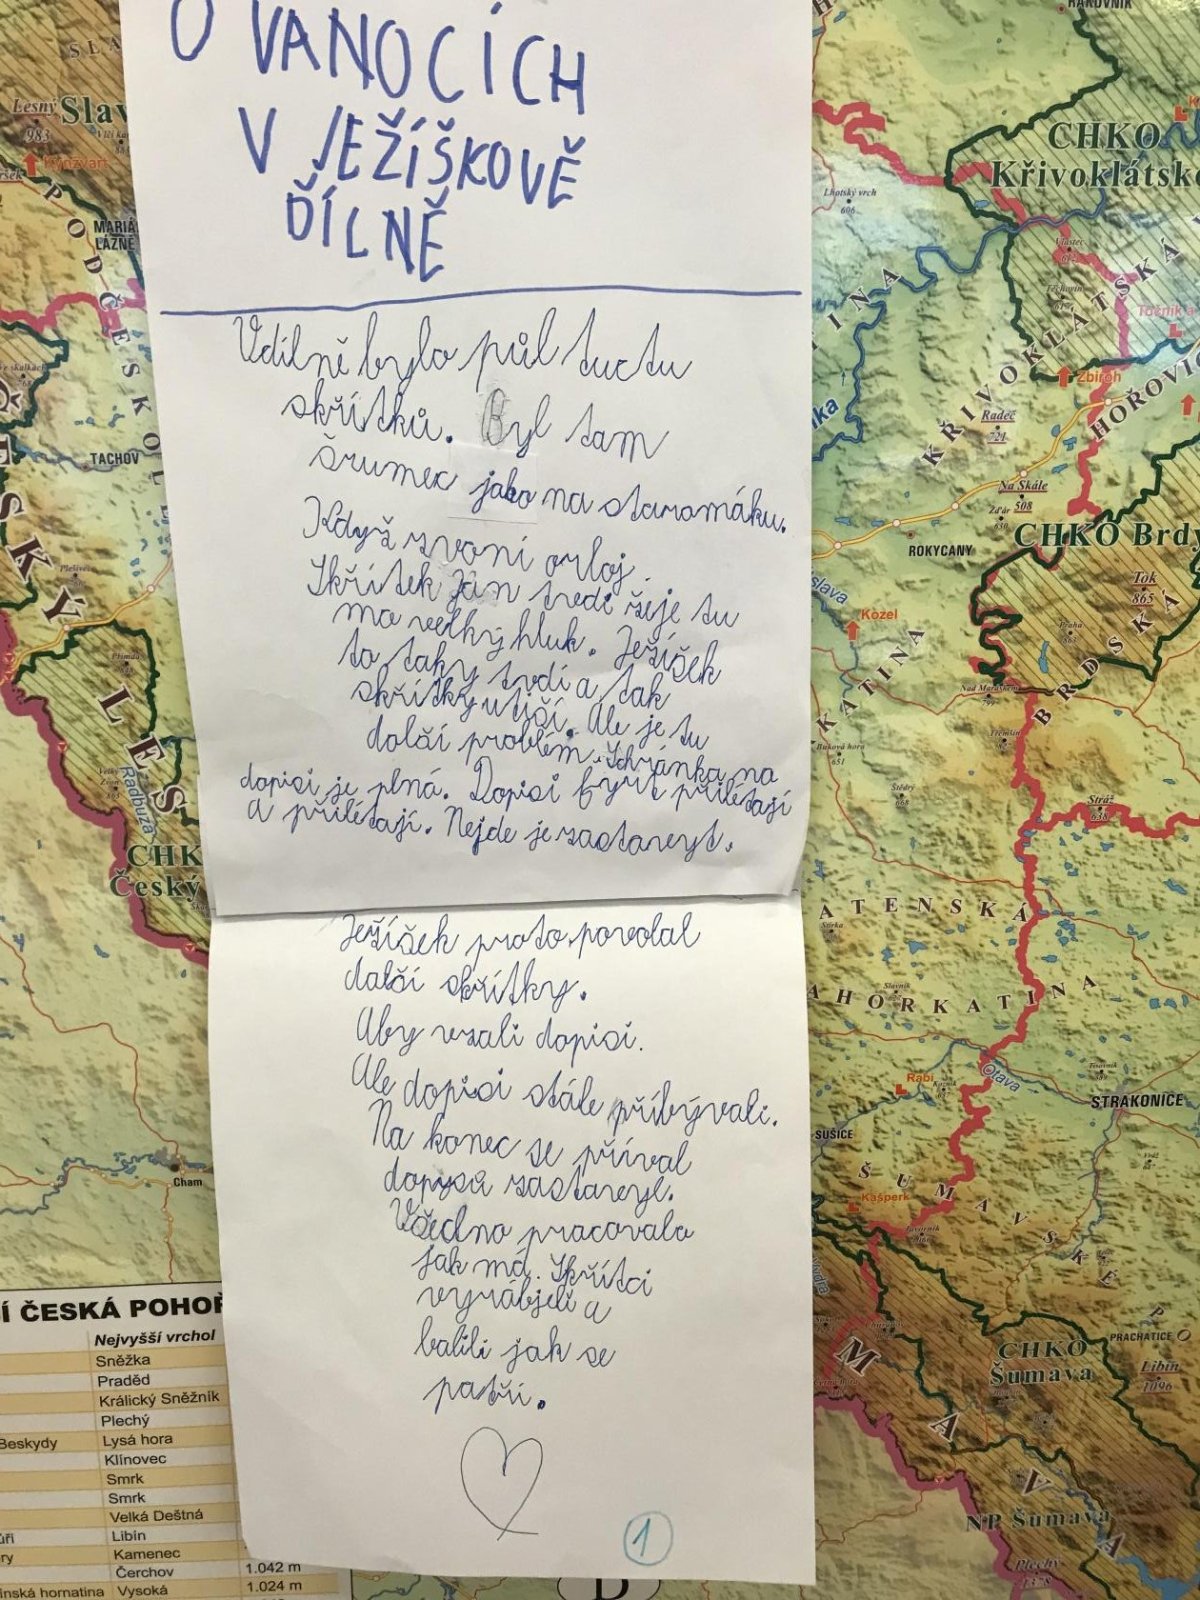 O VANOCÍCH
V JEŽÍŠKOVĚ
DÍLNĚ
Vdílně bylo půl tuctu
skřítků. Byl tam
šrumec jako na staromáku.
Když zvoní orloj.
Skřítek Jan tvdí žeje tu
moc velký hluk. Ježíšek
to taky tvdí a tak
skřítky utiší. Ale je tu
dolší problém. Schránka na
dopisi je plná. Dopisi přilétají
a přilétají. Nejde je zastavyt.
Ježíšek proto povolal
další skřítky.
Aby vzali dopisi.
Ale dopisi stále příbývali.
Na konec se příval
dopysů zastavyl.
Všedno pracovalo
jak má. Skřítci
vyrábjeli a
balili jak se
patří.
1
Lesný
983
Slav
Kynžvart
MARIÁ
LÁZNĚ
PODČESKOL
ČESKÝ LES
TACHOV
Přimda
Radbuza
CHK
Český
Cham
Í ČESKÁ POHOŘ
Nejvyšší vrchol
Sněžka
Praděd
Králický Sněžník
Plechý
Beskydy Lysá hora
Klínovec
Smrk
Smrk
Velká Deštná
Libín
Kamenec
Čerchov 1.042 m
inská hornatina Vysoká 1.024 m
RAKOVNÍK
CHKO
Křivoklátsko
Lhotský vrch
606
INA
KŘIVOKLÁTSKÁ
Točník a
Zbiroh
HOŘOVIC
Radeč
721
Na Skále
508
Žďár
ROKYCANY
CHKO Brdy
Tok
865
Praha
862
BRDSKÁ
Kozel
KATINA
Štědrý
668
Stráž
638
ATENSKÁ
AHORKATINA
Rabí
Otava
STRAKONICE
SUŠICE
ŠUMAVSKÉ
Kašperk
CHKO
Šumava
PRACHATICE
Libín
1096
MAVA
NP Šumava
Plechý
1378
D